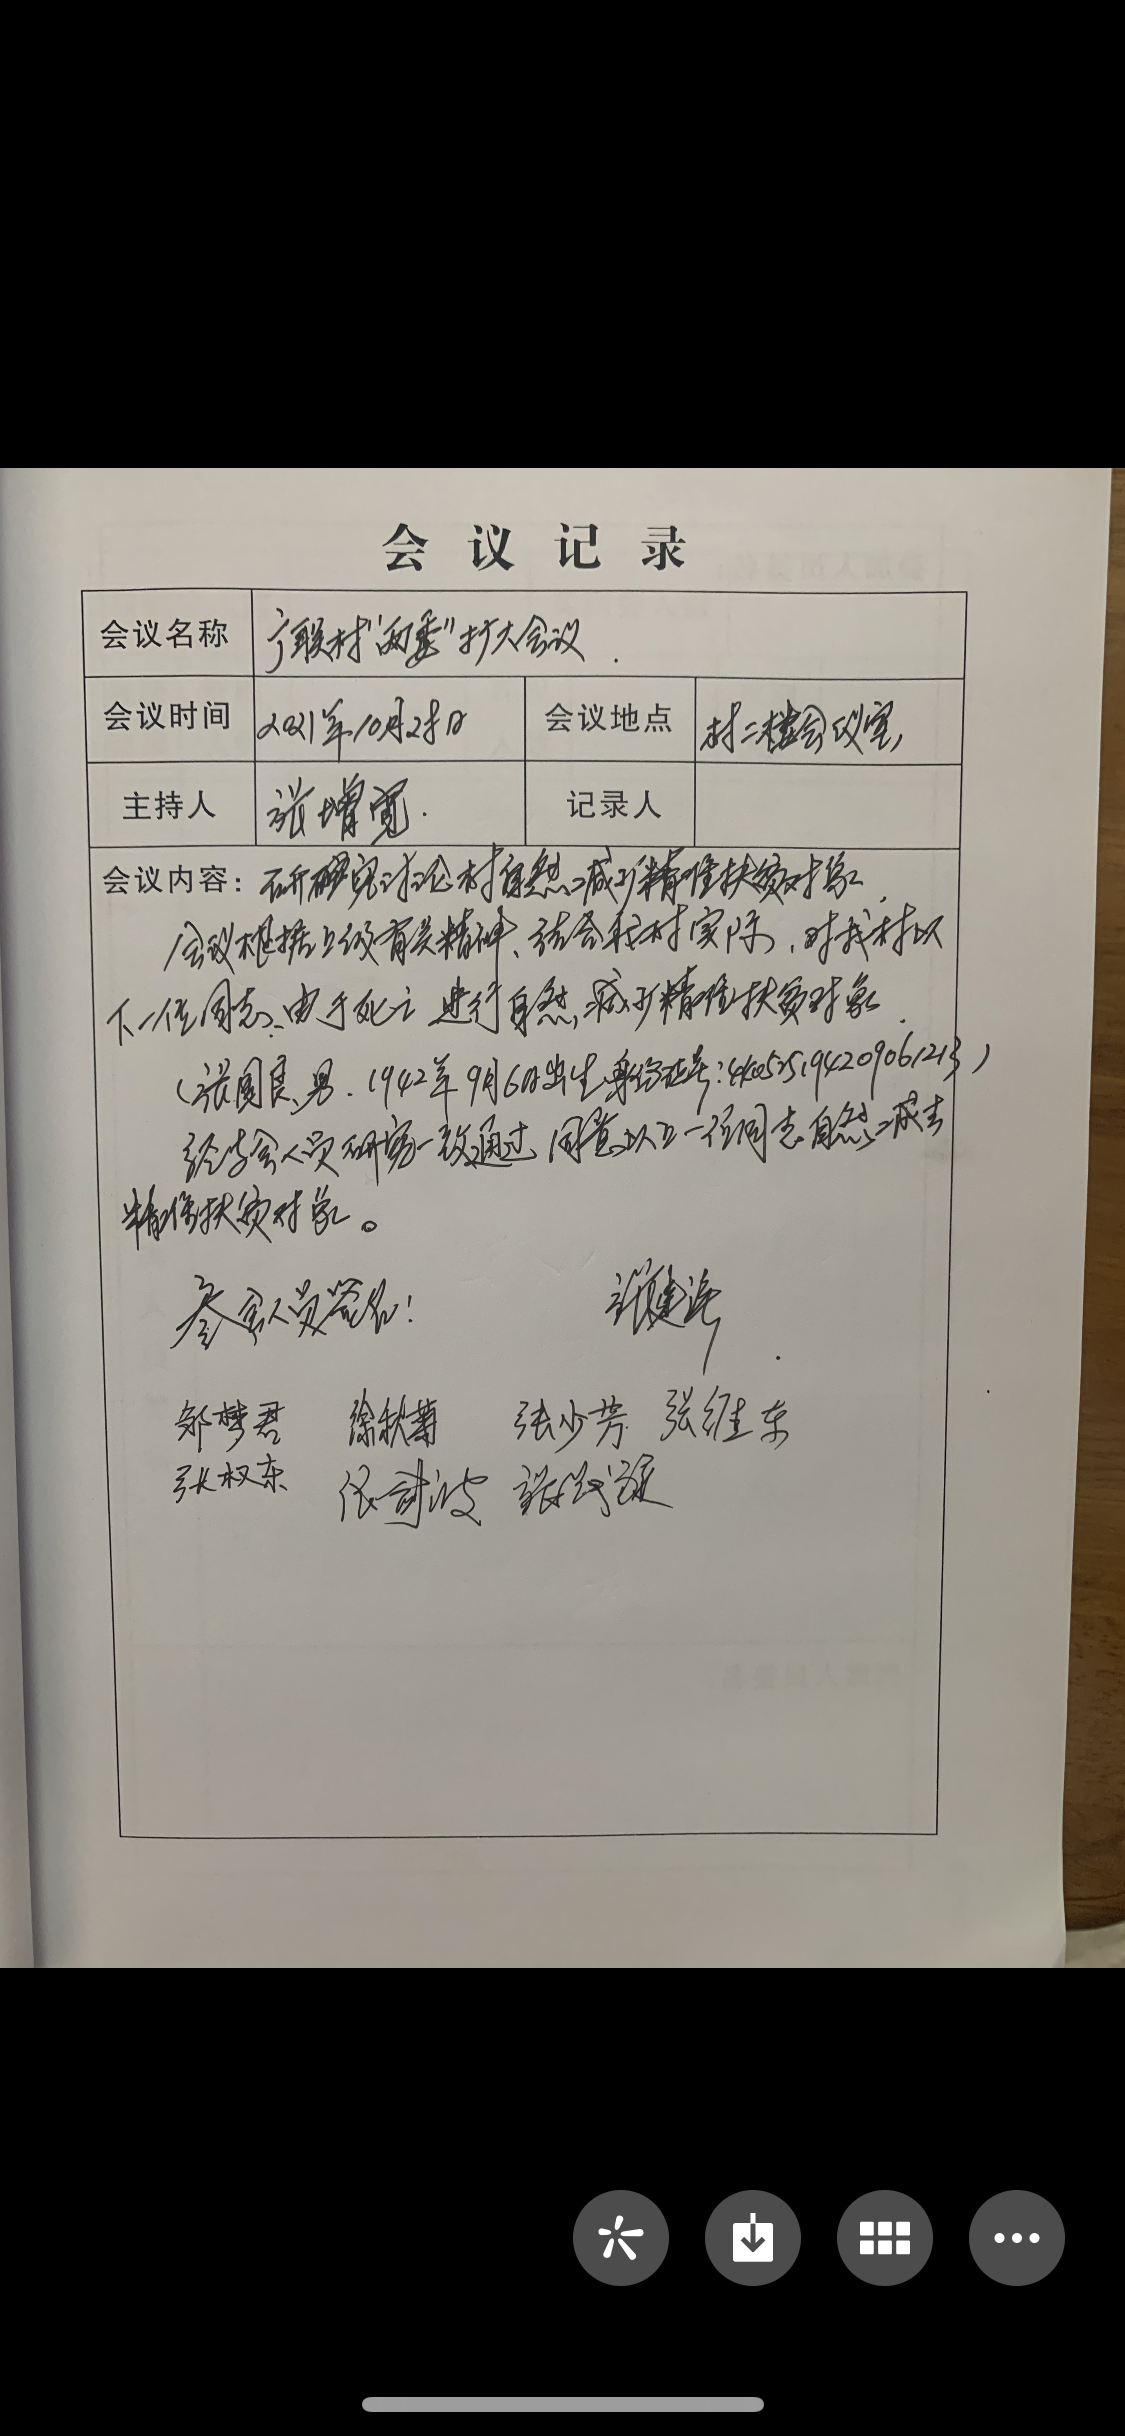 会议记录
会议名称 广联村“两委”扩大会议.
会议时间 2021年10月28日 会议地点 村二楼会议室
主持人 张增宽. 记录人
会议内容：研究讨论村自然减少精准扶贫对象.
会议根据上级有关精神、结合我村实际，对我村以
下一位同志、由于死亡进行自然减少精准扶贫对象.
(张国良、男.1942年9月6日出生 身份证号:440525194209061213)
经与会人员研究一致通过 同意以上一位同志自然减去
精准扶贫对象。
参会人员签名:
邹梦君 徐秋菊 张少芳 张维东
张权东